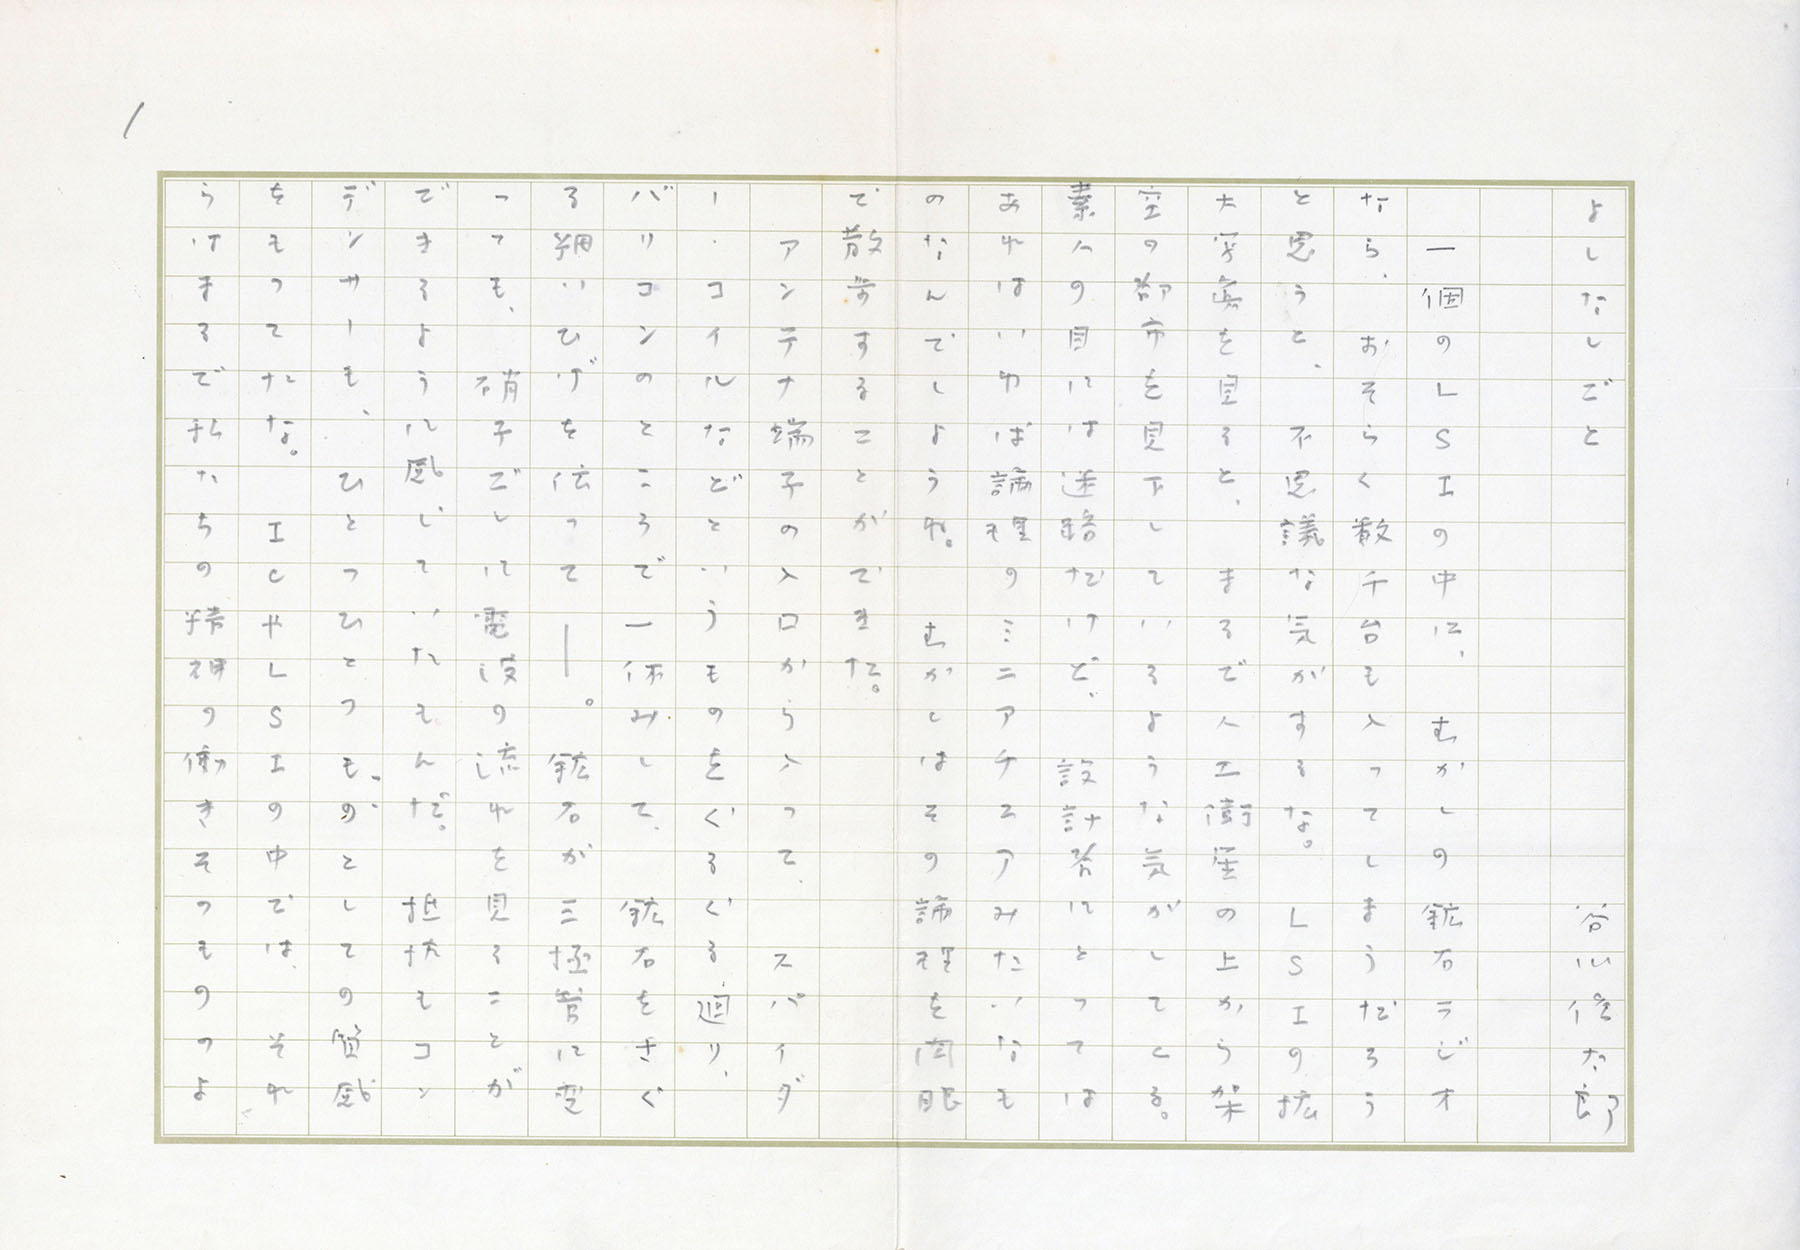 1
よしなしごと　谷川俊太郎
一個のLSIの中に、むかしの鉱石ラジオ
なら、おそらく数千台も入ってしまうだろう
と思うと、不思議な気がするな。LSIの拡
大写真を見ると、まるで人工衛星の上から架
空の都市を見下しているような気がしてくる。
素人の目には迷路だけど、設計者にとっては
あれはいわば論理のミニアチュアみたいなも
のなんでしょうね。むかしはその論理を肉眼
で散歩することができた。
アンテナ端子の入口から入って、スパイダ
ー・コイルなどというものをぐるぐる廻り、
バリコンのところで一休みして、鉱石をさぐ
る細いひげを伝って――。鉱石が三極管に変
っても、硝子ごしに電波の流れを見ることが
できるように感じていたもんだ。抵抗もコン
デンサーも、ひとつひとつものとしての質感
をもってたな。ICやLSIの中では、それ
らはまるで私たちの精神の働きそのもののよ